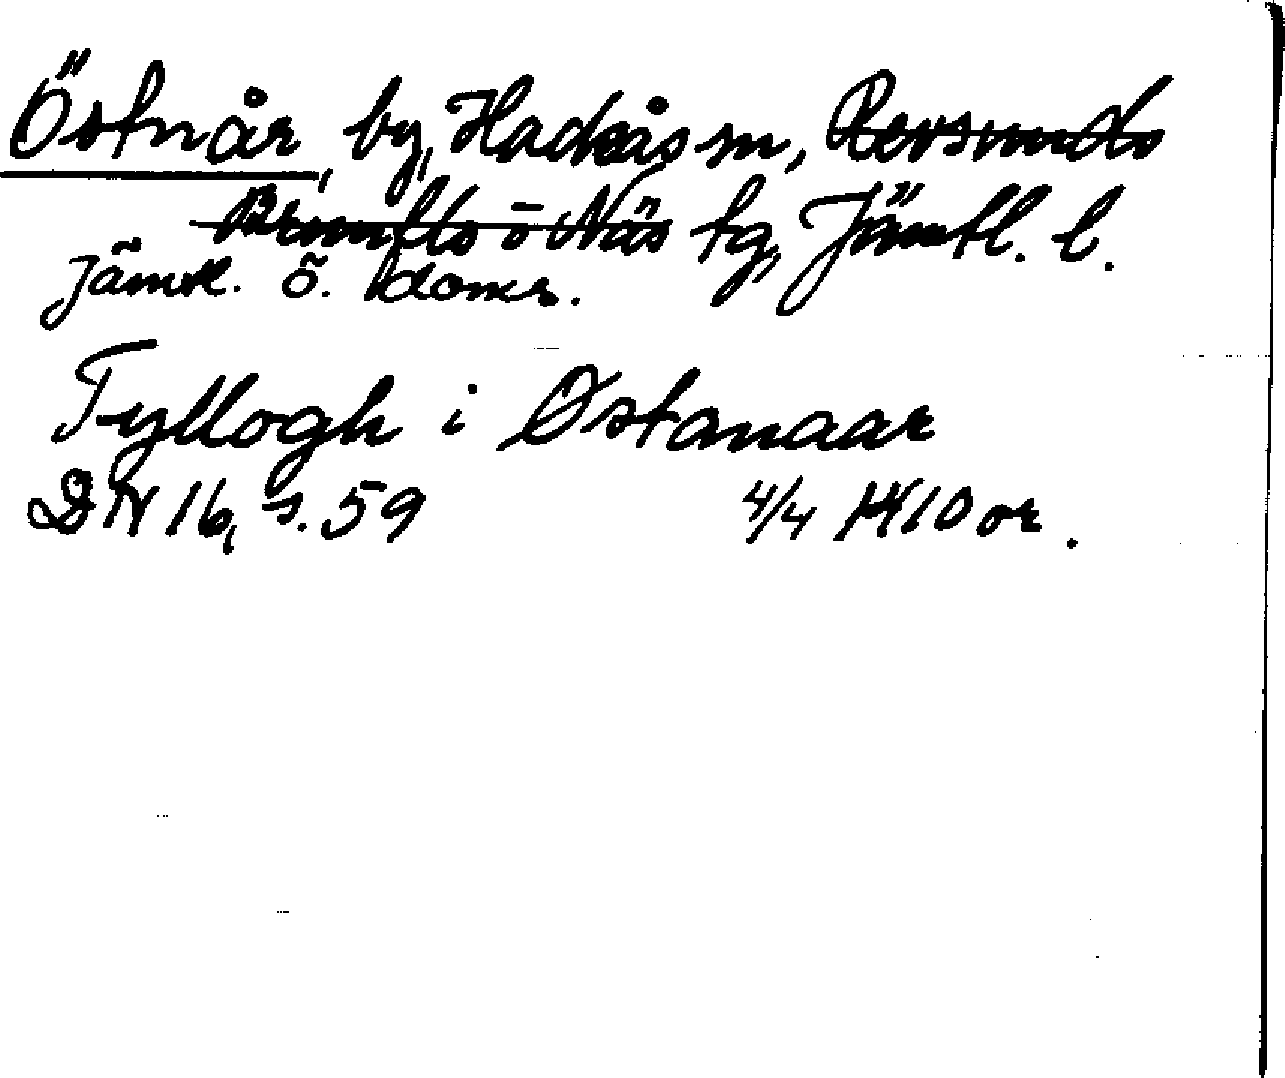 Östnår, by, Hackås sn, Revsunds
Brunflo o Näs tg, Jämtl. l.
Jämtl. ö. doms.
Tyllogh i Østanaar
DN 16, s. 59 4/4 1410 or.